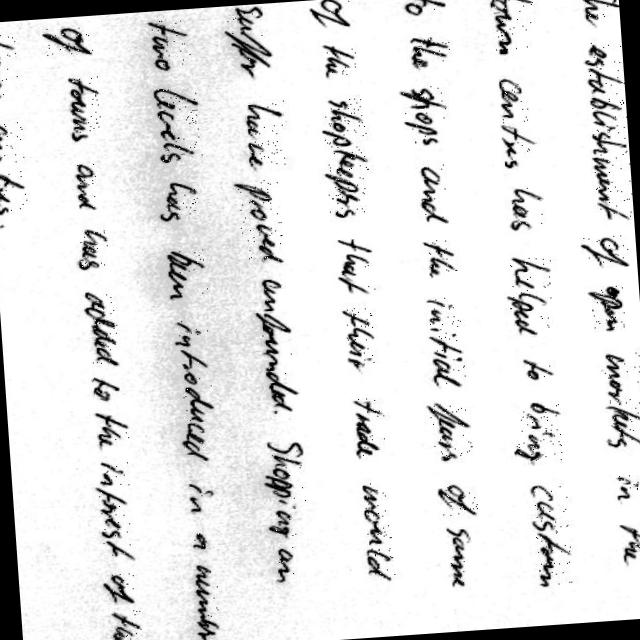 the establishment of open markets in the
town centres has helped to bring custom
to the shops and the initial fears of some
of the shopkeepers that their trade would
suffer have proved unfounded. Shopping on
two levels has been introduced in a number
of towns and has added to the interest of the